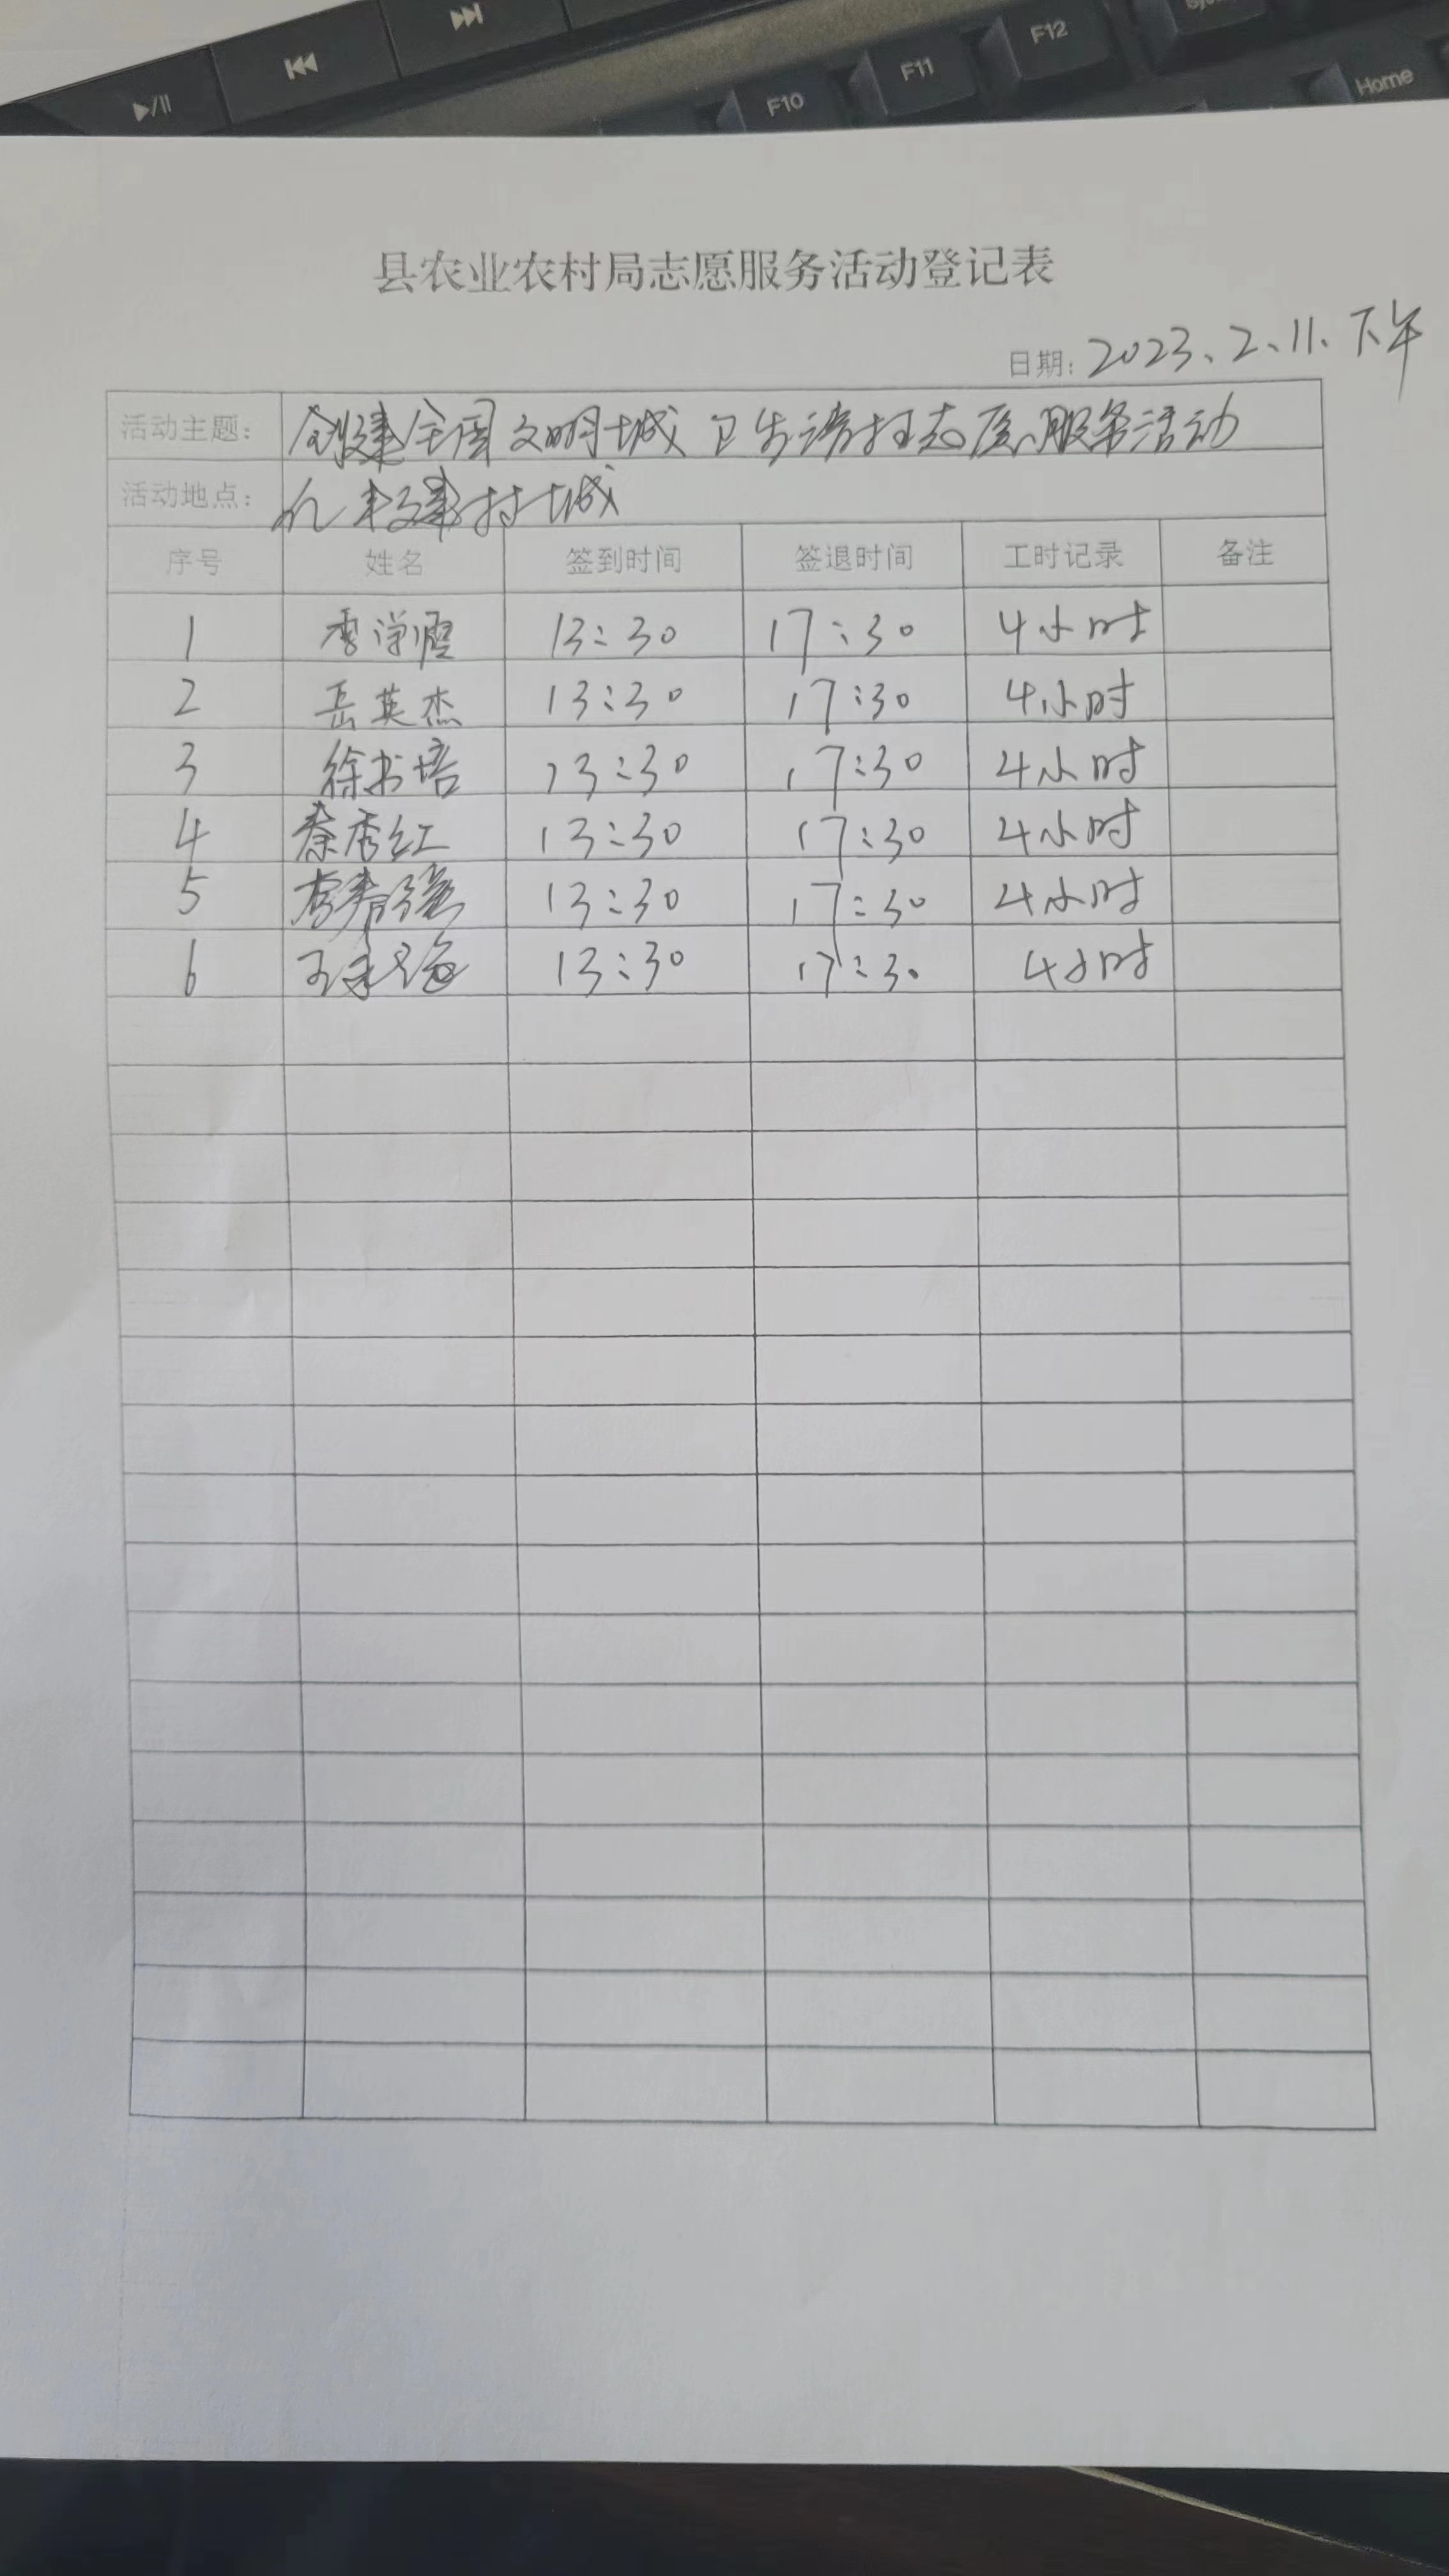 F10 F11 F12 Home
县农业农村局志愿服务活动登记表
日期: 2023、2、11、下午
活动主题: 创建全国文明城 卫生清扫志愿服务活动
活动地点: 建材城
序号 姓名 签到时间 签退时间 工时记录 备注
1 13:30 17:30 4小时
2 岳英杰 13:30 17:30 4小时
3 徐书培 13:30 17:30 4小时
4 秦秀红 13:30 17:30 4小时
5 13:30 17:30 4小时
6 13:30 17:30 4小时